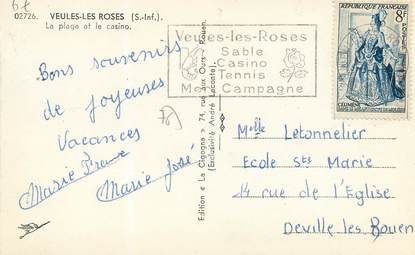 6€
02726. VEULES-LES ROSES (S.-Inf.).
La plage et le casino.
Veules-les-Roses
Sable
Casino
Tennis
Mer Campagne
RÉPUBLIQUE FRANÇAISE
8F
POSTES
CÉLIMÈNE
Bons souvenirs
de joyeuses
Vacances
Marie
Marie José
Edition « La Cigogne » 74, rue aux Ours - Rouen.
(Exclusivité André Leconte).
Melle Letonnelier
Ecole Stes Marie
14 rue de l'Eglise
Deville les Rouen